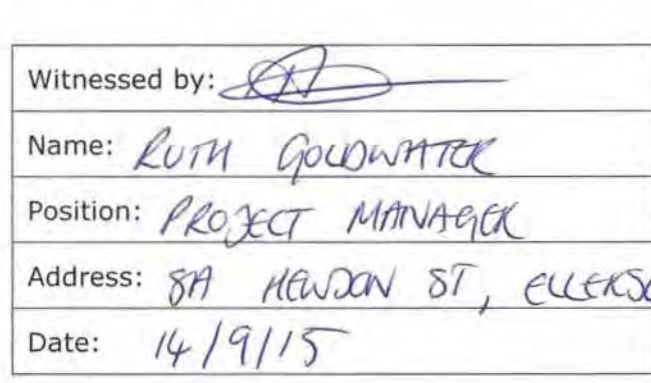 Witnessed by:
Name: RUTH GOLDWATER
Position: PROJECT MANAGER
Address: 8A HEWDON ST,
Date: 14/9/15